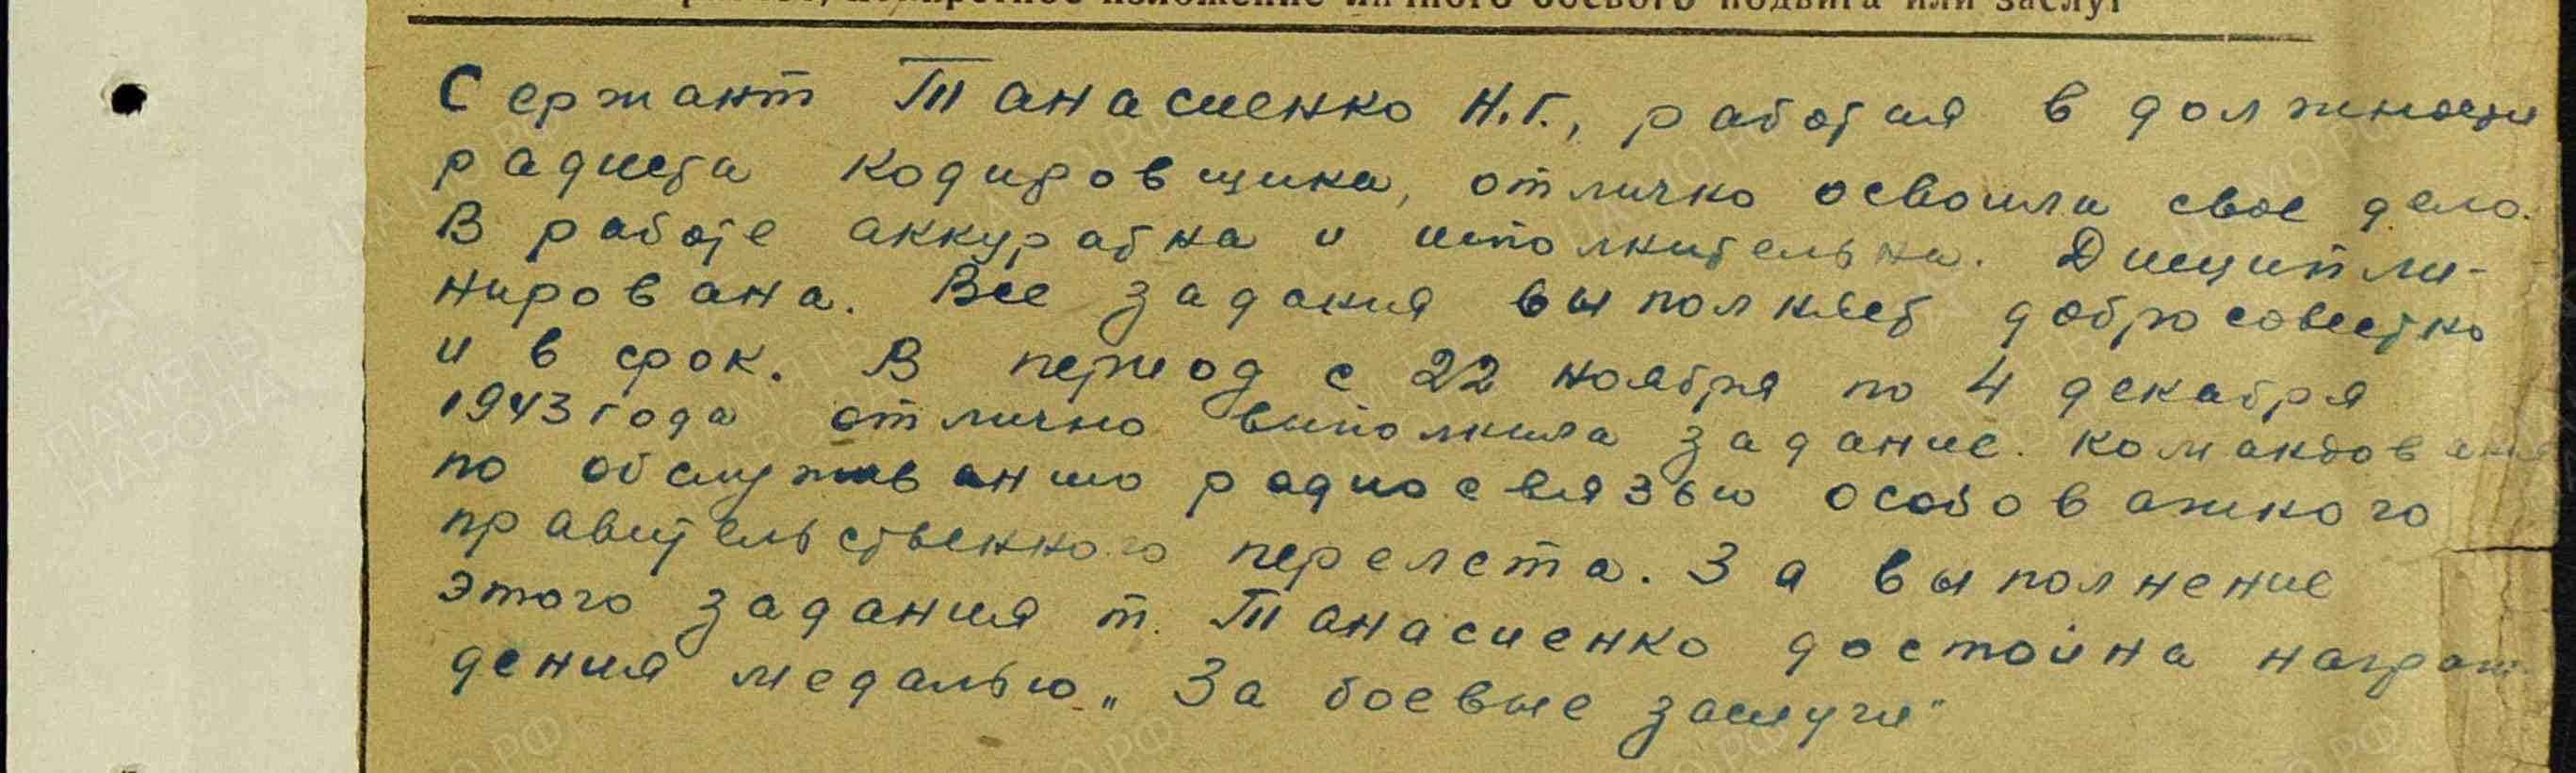 Сержант Танасиенко Н.Г., работая в должности
радиста кодировщика, отлично освоила свое дело.
В работе аккуратна и исполнительна. Дисципли-
нирована. Все задания выполняет добросовестно
и в срок. В период с 22 ноября по 4 декабря
1943 года отлично выполнила задание командования
по обслуживанию радиосвязью особо важного
правительственного перелета. За выполнение
этого задания т. Танасиенко достойна награж
дения медалью „За боевые заслуги"
ПАМЯТЬ
НАРОДА